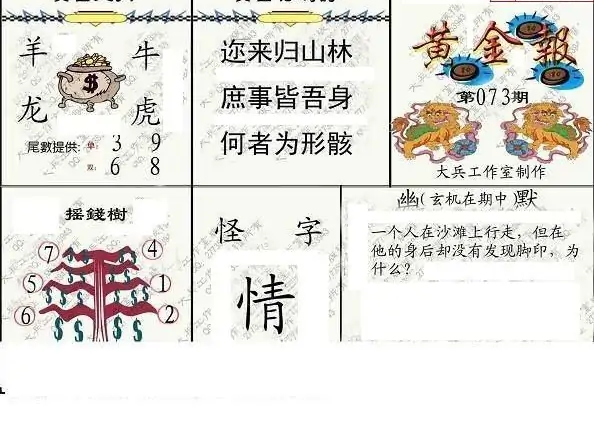 羊 牛
龙 虎
尾數提供: 单: 3 9
双: 6 8
迩来归山林
庶事皆吾身
何者为形骸
黄金報
第073期
大兵工作室制作
摇錢樹
7 4
5 1
6 2
怪 字
情
幽(玄机在期中)默
一个人在沙滩上行走，但在
他的身后却没有发现脚印，为
什么？